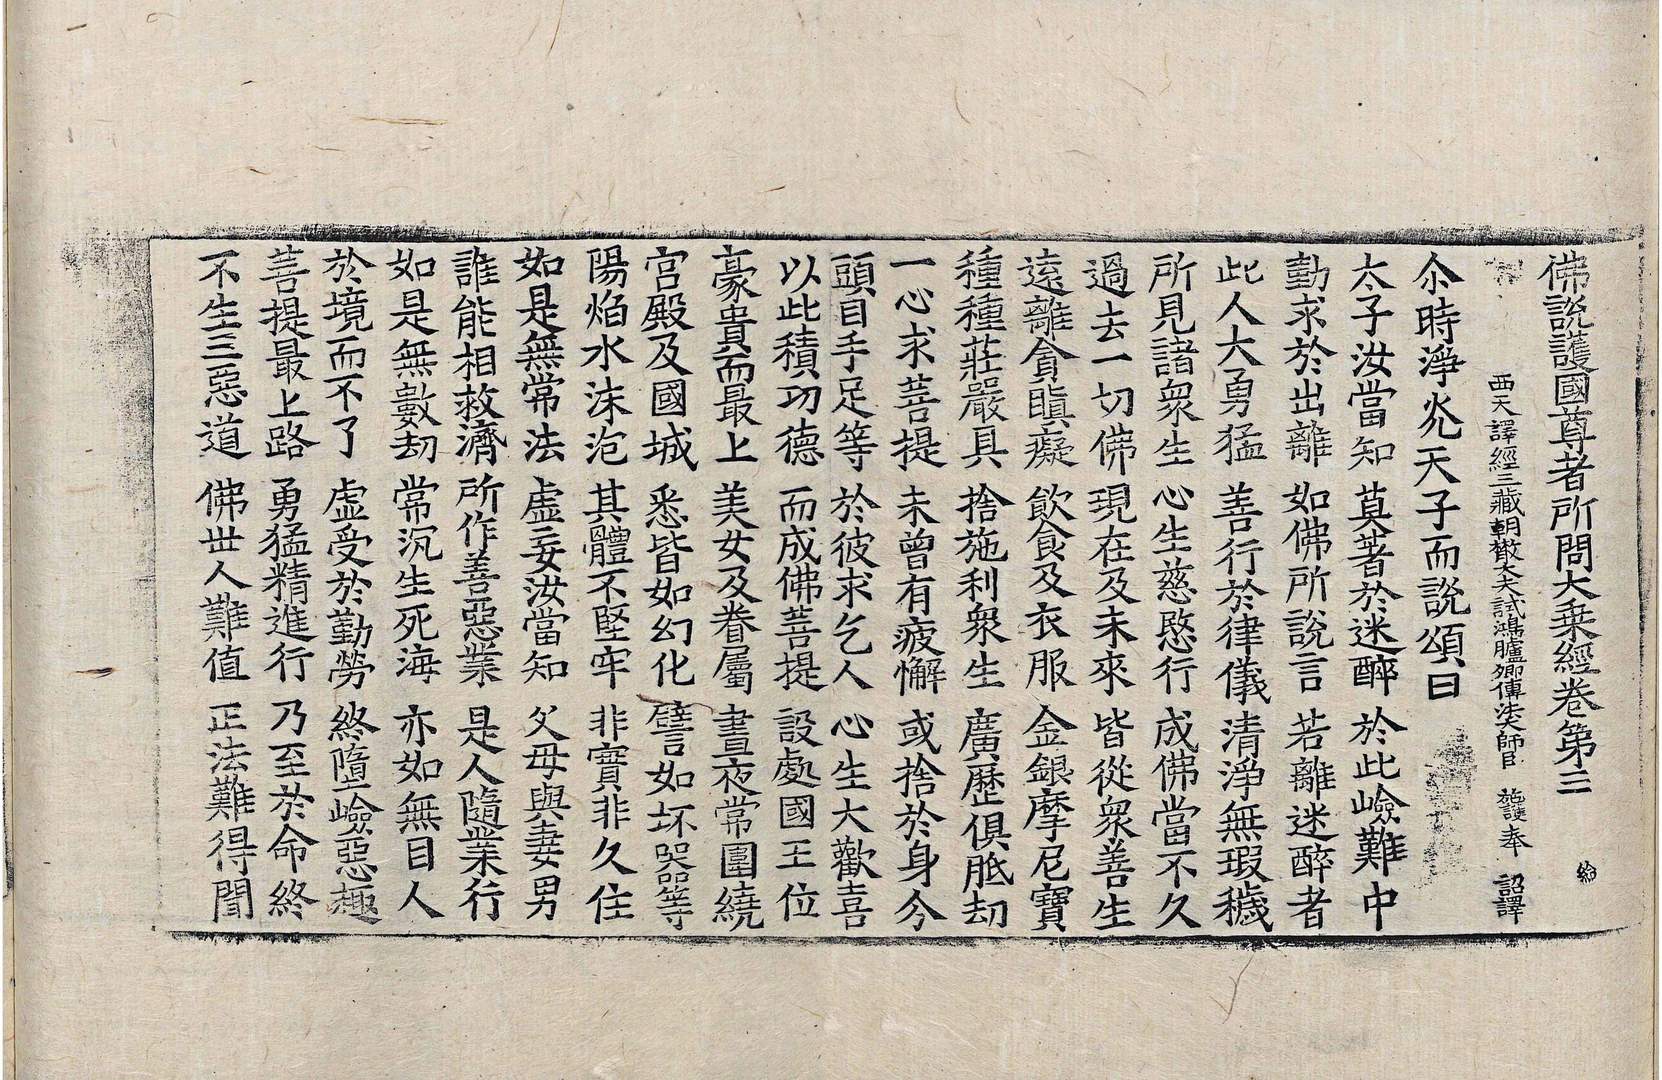 佛說護國尊者所問大乗經卷第三 給
西天譯經三藏朝散大夫試鴻臚卿傳法大師臣 施護奉 詔譯
尒時淨光天子而說頌曰
太子汝當知 莫著於迷醉 於此嶮難中
勤求於出離 如佛所說言 若離迷醉者
此人大勇猛 善行於律儀 清淨無瑕穢
所見諸衆生 心生慈愍行 成佛當不久
過去一切佛 現在及未來 皆從衆善生
遠離貪瞋癡 飲食及衣服 金銀摩尼寶
種種莊嚴具 捨施利衆生 廣歷俱胝劫
一心求菩提 未曾有疲懈 或捨於身今
頭目手足等 於彼求乞人 心生大歡喜
以此積功德 而成佛菩提 設處國王位
豪貴而最上 美女及眷屬 晝夜常圍繞
宮殿及國城 悉皆如幻化 譬如坏器等
陽焰水沫泡 其體不堅牢 非實非久住
如是無常法 虛妄汝當知 父母與妻男
誰能相救濟 所作善惡業 是人隨業行
如是無數劫 常沉生死海 亦如無目人
於境而不了 虛受於勤勞 終墮嶮惡趣
菩提最上路 勇猛精進行 乃至於命終
不生三惡道 佛世人難值 正法難得聞